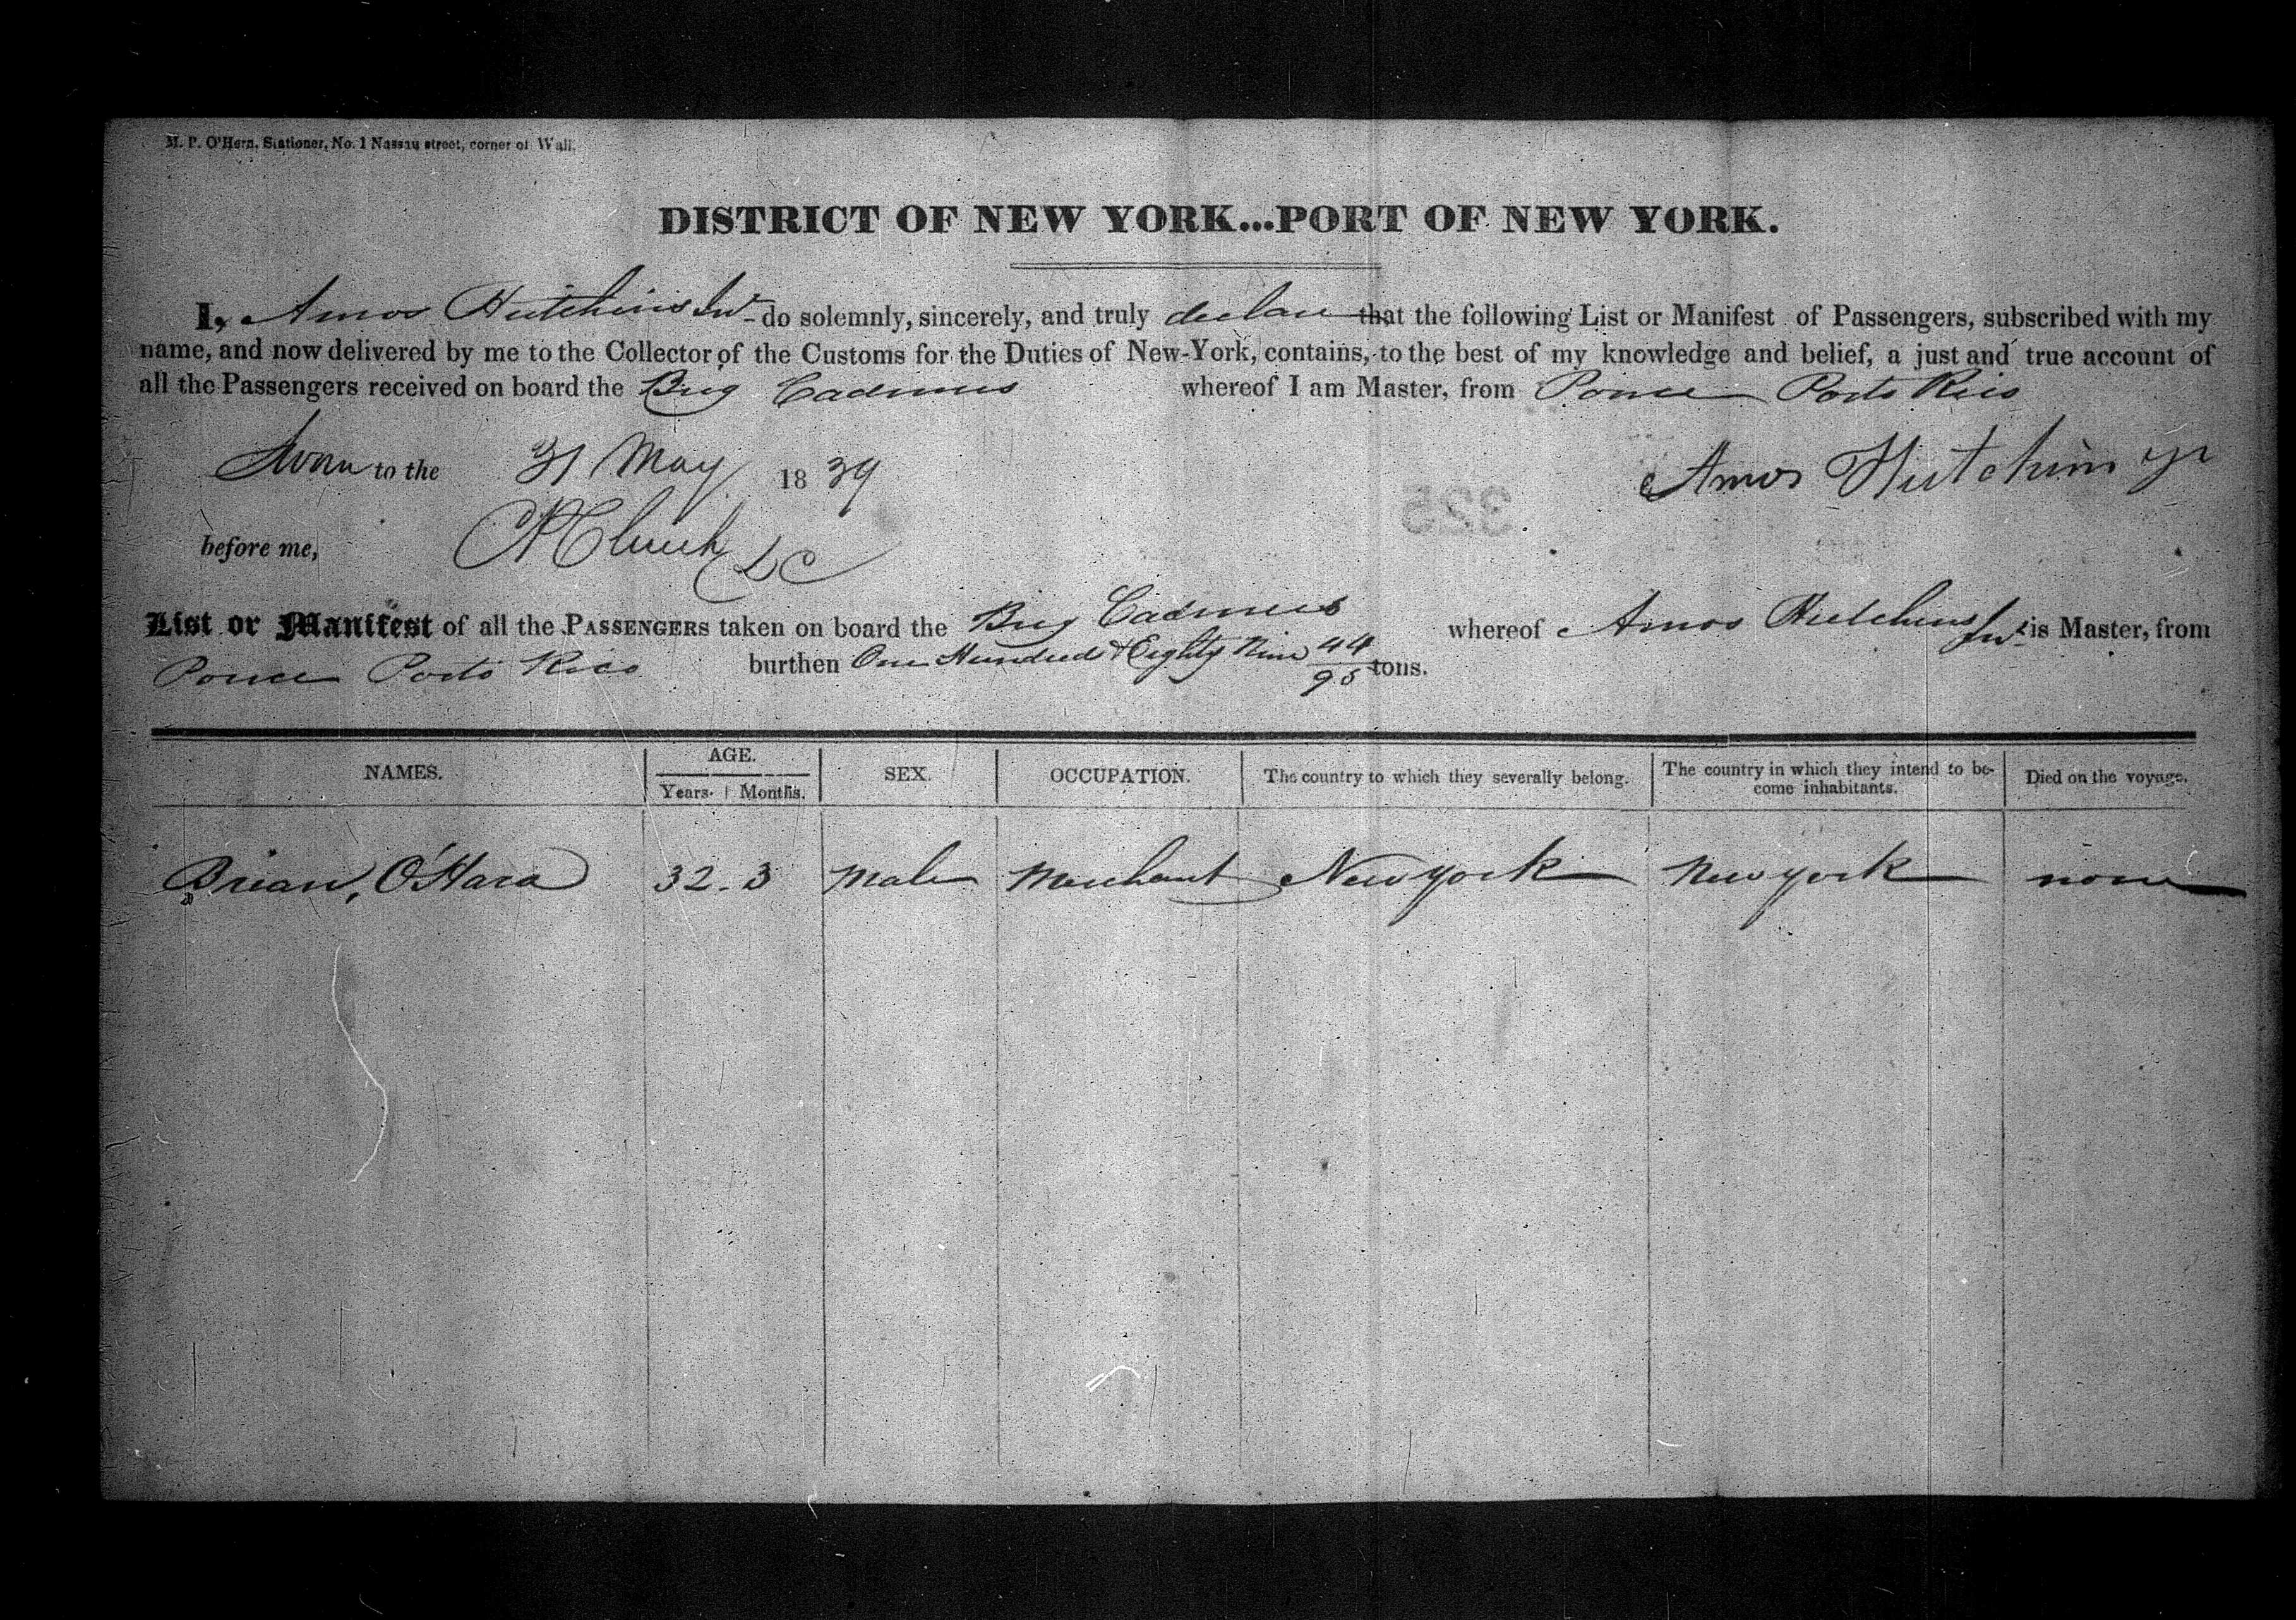 M. P. O'Hern, Stationer, No. 1 Nassau street, corner of Wall.
DISTRICT OF NEW YORK...PORT OF NEW YORK.
I, Amos Hutchins Jnr do solemnly, sincerely, and truly declare that the following List or Manifest of Passengers, subscribed with my
name, and now delivered by me to the Collector of the Customs for the Duties of New-York, contains, to the best of my knowledge and belief, a just and true account of
all the Passengers received on board the Brig Cadmus whereof I am Master, from Ponce Porto Rico
Sworn to the 31 May 1839
Amos Hutchins Jr
before me,
D C
325
List or Manifest of all the PASSENGERS taken on board the Brig Cadmus whereof Amos Hutchins Jnr is Master, from
Ponce Porto Rico burthen One Hundred & Eighty Nine 44/95 tons.
NAMES. AGE. SEX. OCCUPATION. The country to which they severally belong. The country in which they intend to be- Died on the voyage.
Years. Months. come inhabitants.
Brian, O'Hara 32-3 Male Merchant New york New york none